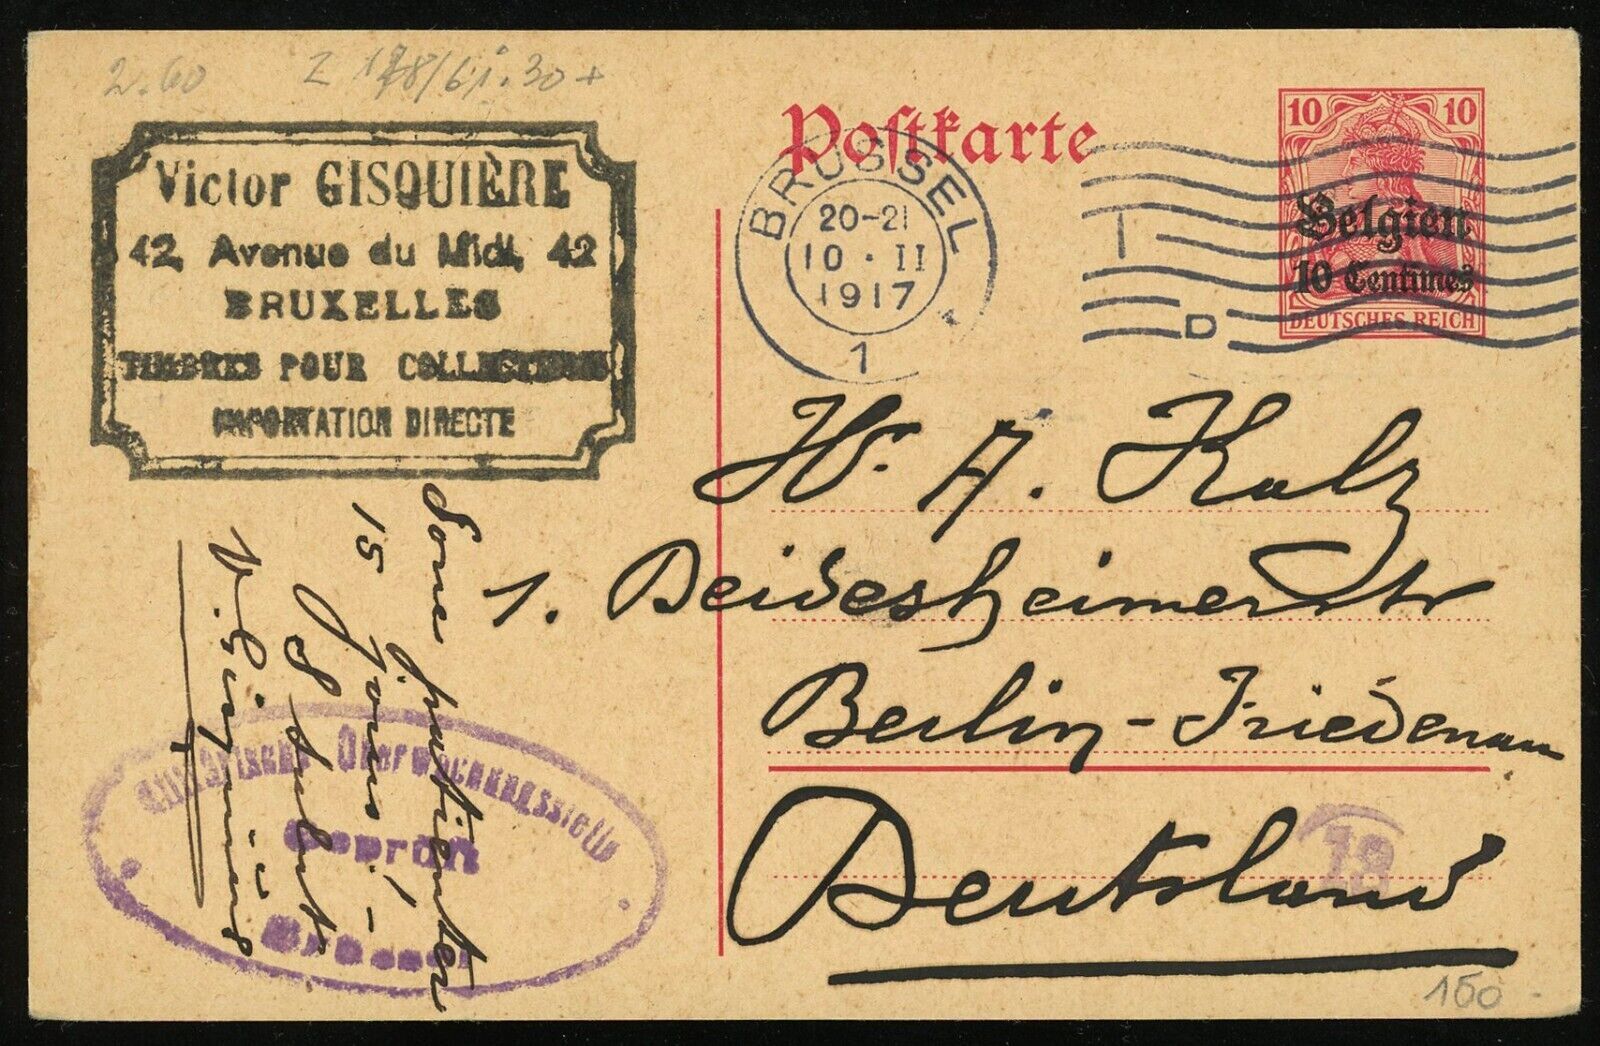 2.60
Z 178/61.30+
Victor GISQUIÈRE
42, Avenue du Midi, 42
BRUXELLES
TIMBRES POUR COLLECTIONS
IMPORTATION DIRECTE
Postkarte
BRÜSSEL
20-21
10·II
1917
1
1
D
10 10
Belgien
10 Centimes
DEUTSCHES REICH
Hr. A. Kalz
1. Deidesheimerstr
Berlin-Friedenau
Deutsland
18
150
patienter
15 jours
Salut
Militärische Überwachungsstelle
Geprüft
Brüssel